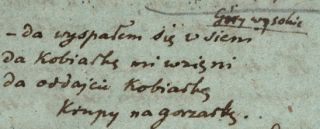 Góry wysokie
– da wyspałem się v sieni
da Kobiałkę mi wzięni
da oddajcie Kobiałkę
Krupy na gorzałkę.